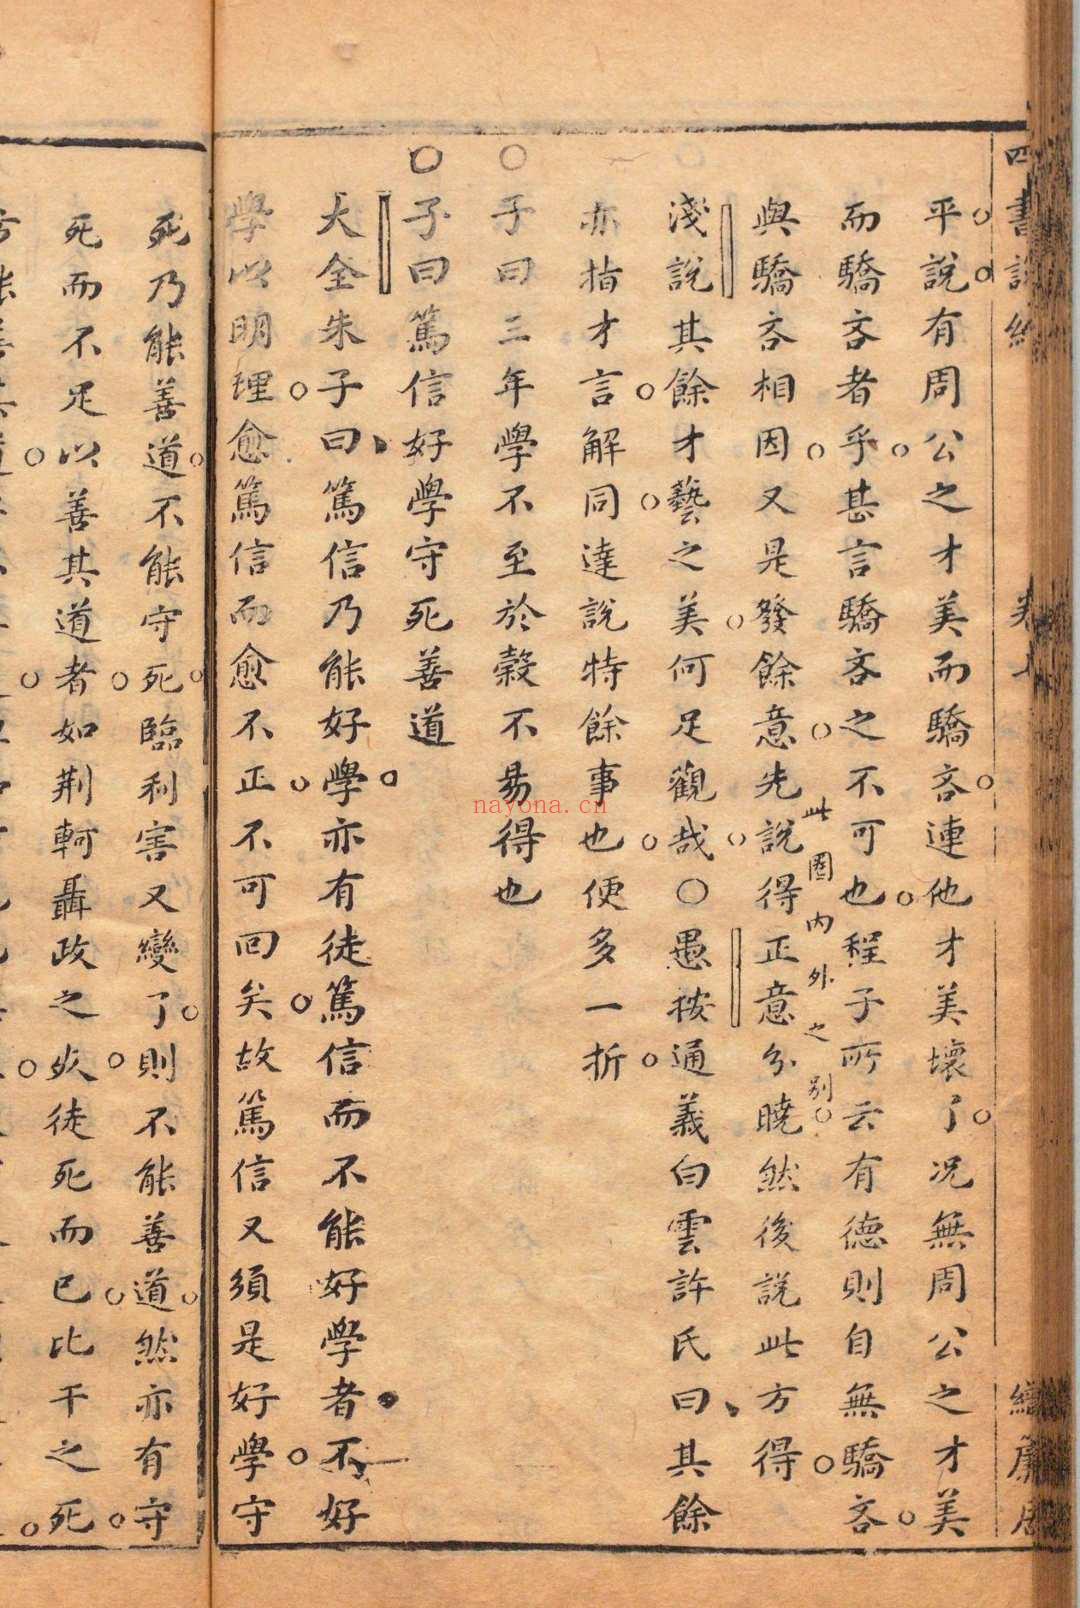 四書說約
平說有周公之才美而驕吝連他才美壞了况無周公之才美
而驕吝者乎甚言驕吝之不可也程子所云有德則自無驕吝
此圈内外之别
與驕吝相因又是發餘意先說得正意分曉然後說此方得
淺說其餘才藝之美何足觀哉○愚按通義白雲許氏曰其餘
亦指才言解同達說特餘事也便多一折
○子曰三年學不至於穀不易得也
○子曰篤信好學守死善道
大全朱子曰篤信乃能好學亦有徒篤信而不能好學者不好
學以明理愈篤信而愈不正不可回矣故篤信又須是好學守
死乃能善道不能守死臨利害又變了則不能善道然亦有守
死而不足以善其道者如荆軻聶政之死徒死而已比干之死
nayona.cn